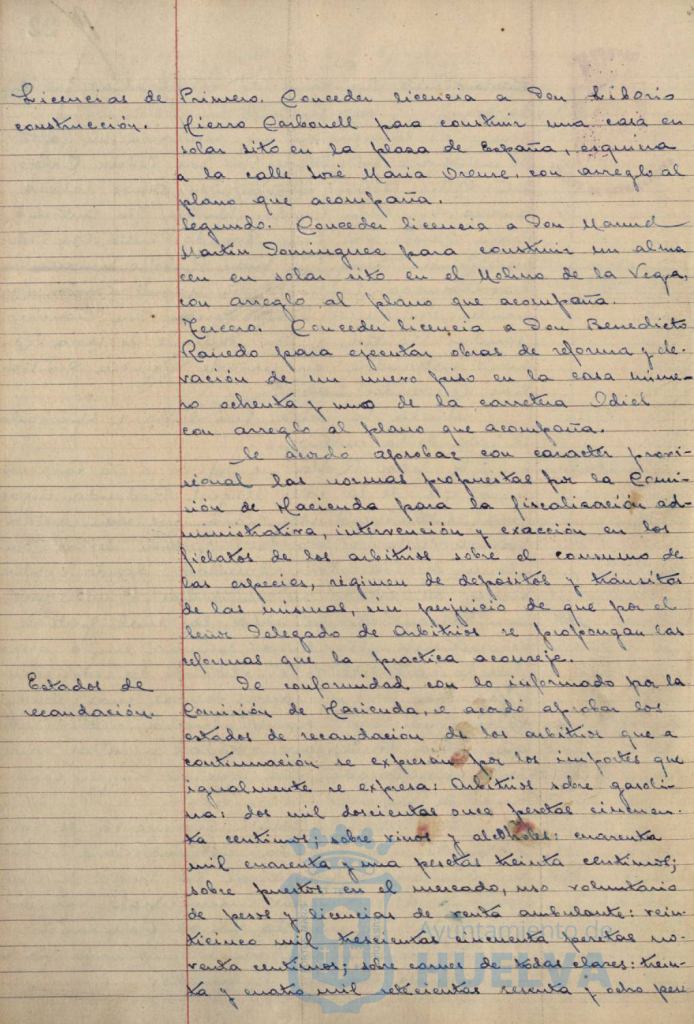 Licencias de
construcción.
Primero. Conceder licencia a Don Liborio
Hierro Carbonell para construir una casa en
solar sito en la plaza de España, esquina
a la calle José Maria Orense, con arreglo al
plano que acompaña.
Segundo. Conceder licencia a Don Manuel
Martin Dominguez para construir un alma
cen en solar sito en el Molino de la Vega,
con arreglo al plano que acompaña.
Tercero. Conceder licencia a Don Benedicto
para ejecutar obras de reforma y ele-
vación de un nuevo piso en la casa núme-
ro ochenta y uno de la carretera Odiel
con arreglo al plano que acompaña.
Se acordó aprobar con caracter provi-
sional las normas propuestas por la Comi-
sión de Hacienda para la fiscalización ad-
ministrativa, intervención y exacción en los
fielatos de los arbitrios sobre el consumo de
las especies, régimen de depósitos y tránsitos
de las mismas, sin perjuicio de que por el
Señor Delegado de Arbitrios se propongan las
reformas que la practica aconseje.
Estados de
recaudación.
De conformidad con lo informado por la
Comisión de Hacienda, se acordó aprobar los
estados de recaudación de los arbitrios que a
continuación se expresan por los importes que
igualmente se expresa: Arbitrios sobre gasoli-
na: dos mil doscientas once pesetas cincuen-
ta centimos; sobre vinos y alcoholes: cuarenta
mil cuarenta y una pesetas treinta centimos;
sobre puestos en el mercado, uso voluntario
de pesos y licencias de venta ambulante: vein-
ticinco mil trescientas cincuenta pesetas no-
venta centimos; sobre carnes de todas clases: trein-
ta y cuatro mil setecientas sesenta y ocho pese
Ayuntamiento de
HUELVA